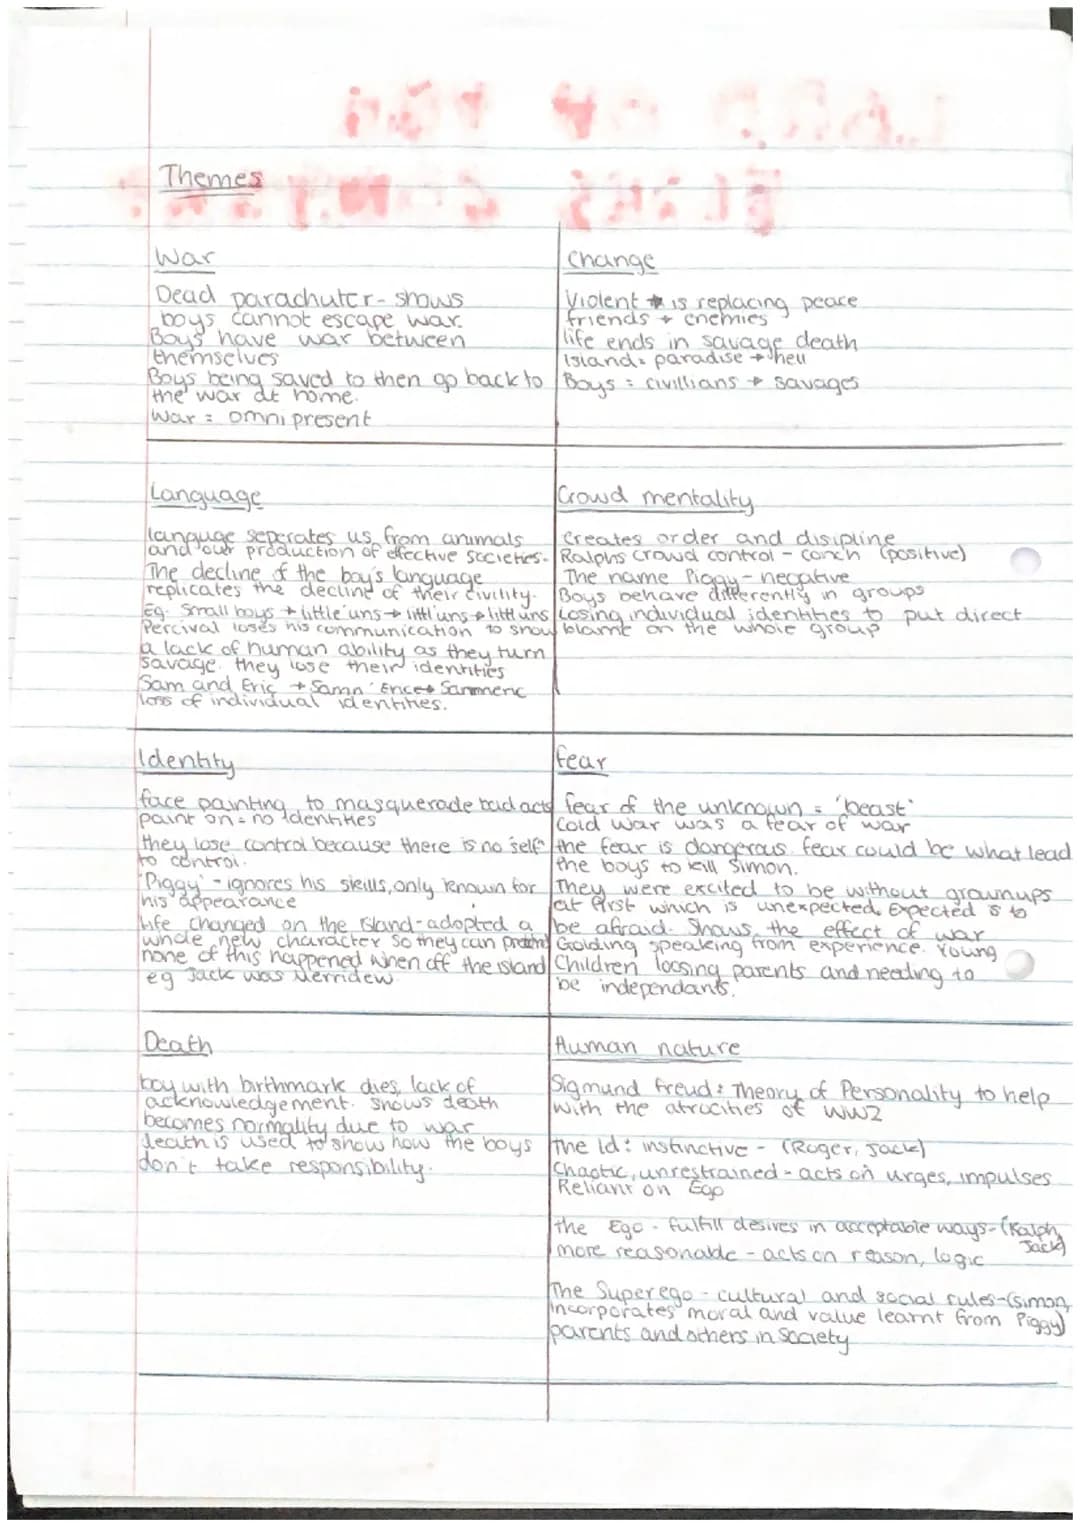 Themes
War
Dead parachuter - shows
boys cannot escape war.
Boys have war between
themselves
Boys being saved to then go back to
the war at home.
War = omnipresent
Change
Violent is replacing peace
friends → enemies
life ends in savage death
island = paradise → hell
Boys = civillians → savages
Language
languge seperates us from animals
and our production of effective societies.
The decline of the boy's language
replicates the decline of their civility.
Eg. Small boys → little'uns → littl'uns → littluns
Percival loses his communication to show
a lack of human ability as they turn
savage. they lose their identities
Sam and Eric → Samn'Eric → Samneric
loss of individual identities.
Crowd mentality
Creates order and disipline
Ralphs crowd control - conch (positive)
The name Piggy - negative
Boys behave differently in groups
Losing individual identities to put direct
blame on the whole group
Identity
face painting to masquerade bad acts
paint on = no identities
they lose control because there is no 'self'
to control.
'Piggy' - ignores his skills, only known for
his appearance
Life changed on the island - adopted a
whole new character so they can pretend
none of this happened when off the island
eg Jack was Merridew
Fear
fear of the unknown = 'beast'
Cold war was a fear of war
the fear is dangerous. fear could be what lead
the boys to kill Simon.
They were excited to be without grownups
at first which is unexpected. Expected is to
be afraid. Shows the effect of war
Golding speaking from experience. Young
Children loosing parents and needing to
be independants.
Death
boy with birthmark dies, lack of
acknowledgement. shows death
becomes normality due to war
death is used to show how the boys
don't take responsibility.
Human nature
Sigmund Freud: Theory of Personality to help
with the atrocities of WW2
The Id: instinctive - (Roger, Jack)
Chaotic, unrestrained - acts on urges, impulses
Reliant on Ego
the Ego - fulfill desires in acceptable ways - (Ralph,
Jack)
more reasonable - acts on reason, logic
The Superego - cultural and social rules - (Simon,
Incorporates moral and value learnt from Piggy)
parents and others in society